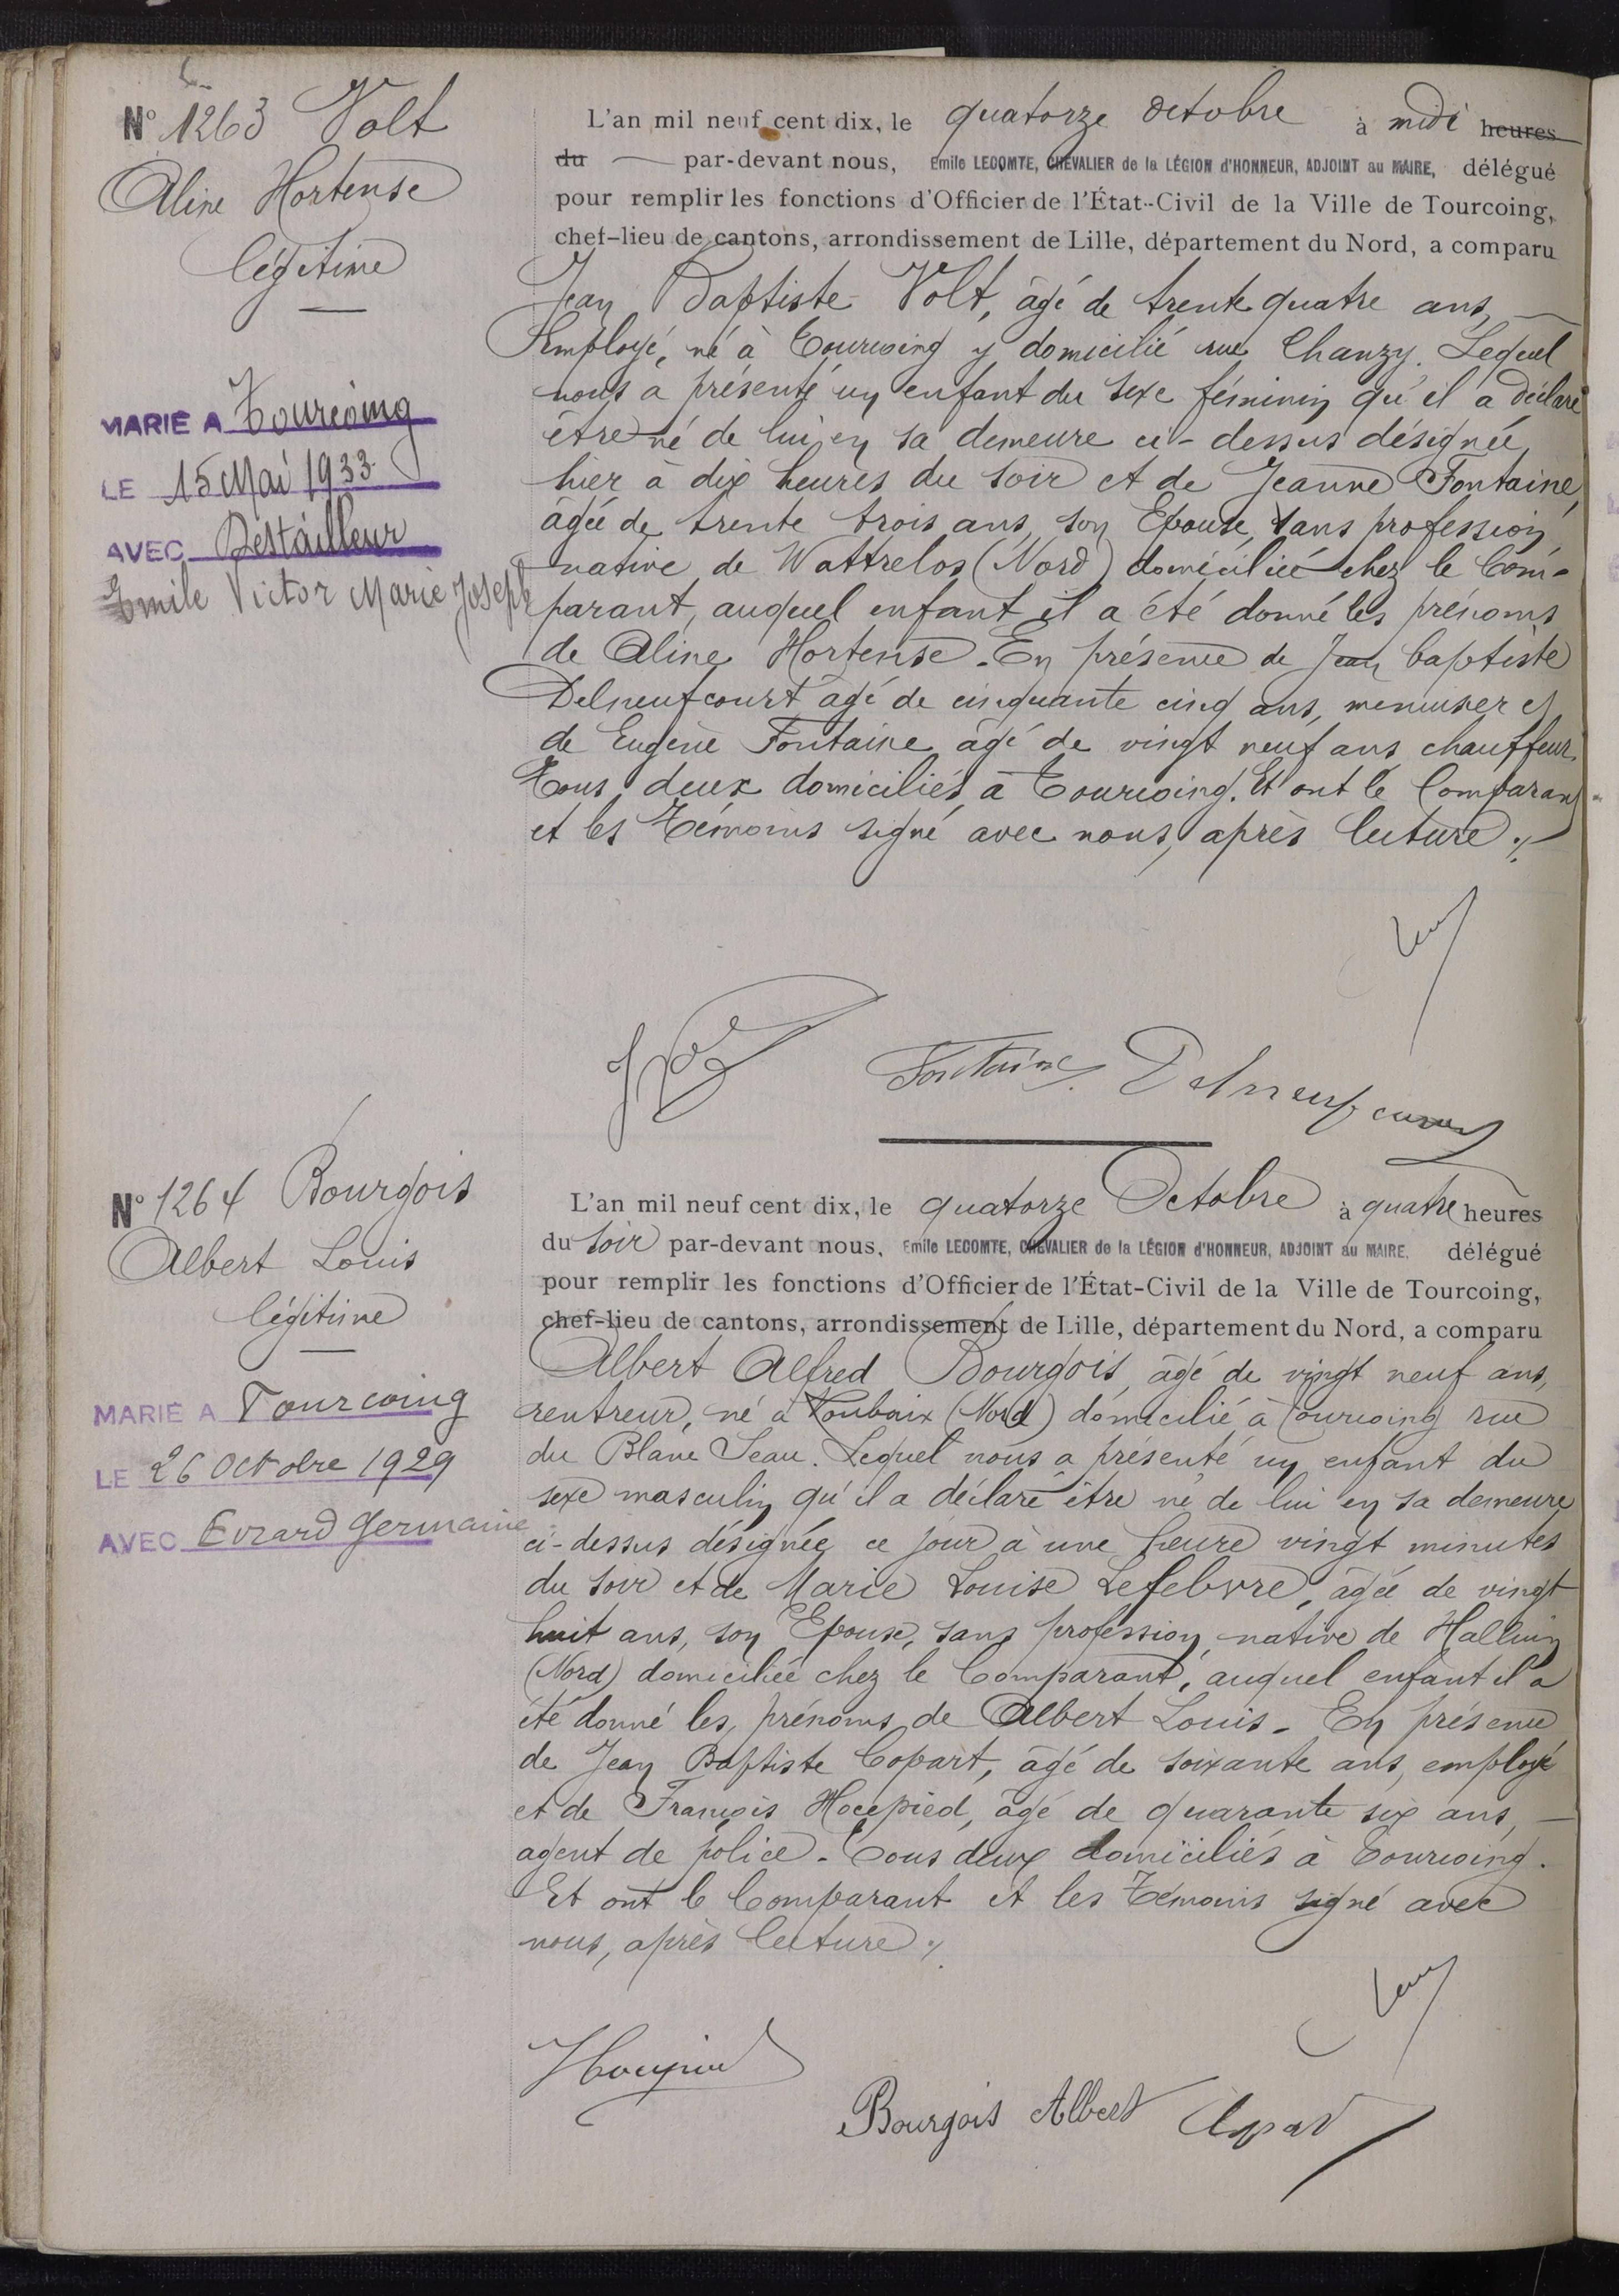 N° 1263 Volt
Aline Hortense
légitime
MARIE A Tourcoing
LE 15 Mai 1933
AVEC Déstailleur
Emile Victor Marie Joseph
L'an mil neuf cent dix, le quatorze octobre à midi heures
du par-devant nous, Emile LECOMTE, CHEVALIER de la LÉGION d'HONNEUR, ADJOINT au MAIRE, délégué
pour remplir les fonctions d'Officier de l'État-Civil de la Ville de Tourcoing,
chef-lieu de cantons, arrondissement de Lille, département du Nord, a comparu
Jean Baptiste Volt, âgé de trente quatre ans,
Employé, né à Tourcoing y domicilié rue Chanzy. Lequel
nous a présenté un enfant du sexe féminin qu'il a déclaré
être né de lui, en sa demeure ci-dessus désignée
hier à dix heures du soir et de Jeanne Fontaine,
âgée de trente trois ans, son Epouse, sans profession
native de Wattrelos (Nord) domiciliée chez le Com-
parant, auquel enfant il a été donné les prénoms
de Aline Hortense. En présence de Jean baptiste
Delneufcourt âgé de cinquante cinq ans, menuisier et
de Eugène Fontaine âgé de vingt neuf ans chauffeur.
Tous deux domiciliés à Tourcoing. Et ont le Comparant
et les Témoins signé avec nous, après lecture ./.
Fontaine Delneufcourt
N° 1264 Bourgois
Albert Louis
légitime
MARIE A Tourcoing
LE 26 Octobre 1929
AVEC Evrard Germaine
L'an mil neuf cent dix, le quatorze Octobre à quatre heures
du soir par-devant nous, Emile LECOMTE, CHEVALIER de la LÉGION d'HONNEUR, ADJOINT au MAIRE. délégué
pour remplir les fonctions d'Officier de l'État-Civil de la Ville de Tourcoing,
chef-lieu de cantons, arrondissement de Lille, département du Nord, a comparu
Albert Alfred Bourgois, âgé de vingt neuf ans,
rentreur, né à Roubaix (Nord) domicilié à Tourcoing rue
du Blanc Seau. Lequel nous a présenté un enfant du
sexe masculin qu'il a déclaré être né de lui en sa demeure
ci-dessus désignée ce jour à une heure vingt minutes
du soir et de Marie Louise Lefebvre, âgée de vingt
huit ans, son Epouse, sans profession native de Halluin
(Nord) domiciliée chez le Comparant, auquel enfant il a
été donné les prénoms de Albert Louis. En présence
de Jean Baptiste Copart, âgé de soixante ans, employé
et de François Hocepied, âgé de quarante six ans,
agent de police. Tous deux domiciliés à Tourcoing.
Et ont le Comparant et les Témoins signé avec
nous, après lecture ./.
Hocepied
Bourgois Albert Copart